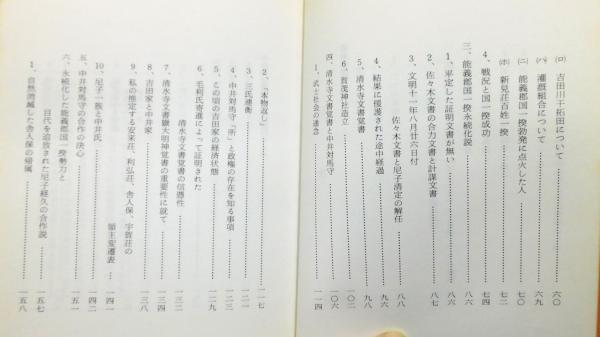 (ロ) 吉田川干拓田について……六〇
(ハ) 灌漑組合について……六九
(ニ) 能義郡国一揆勃発に点火した人……七〇
(ホ) 新見荘百姓一揆……七二
4、戦況と国一揆成功……七四
三、能義郡国一揆永続化説……八六
1、平定した証明文書が無い……八六
2、佐々木文書の合力文書と計謀文書……八七
3、文明十一年八月廿六日付
佐々木文書と尼子清定の解任……八八
4、結果に援護された途中経過……九六
5、清水寺文書覚書……九八
6、賀茂神社造立……一〇二
四、清水寺文書覚書と中井対馬守……一〇六
1、武士社会の通念……一一四
2、「本物返し」……一一七
3、三氏連衡……一二一
4、中井対馬守「所」と政権の存在を知る事項……一二三
5、この頃の吉田家の経済状態……一二九
6、毛利氏寄進によって証明された
清水寺文書覚書の信憑性……一三二
7、清水寺文書嶽大明神覚書の重要性に就て……一三四
8、吉田家と中井家……一三八
9、私の推定する安来荘、利弘荘、舎人保、宇賀荘の
領主変遷表……一四一
10、尼子一族と中井氏……一四二
五、中井対馬守の合作の決心……一五一
六、永続化した能義郡国一揆勢力と
目代を追放された尼子経久の合作説……一五七
1、自然消滅した舎人保の帰属……一五八